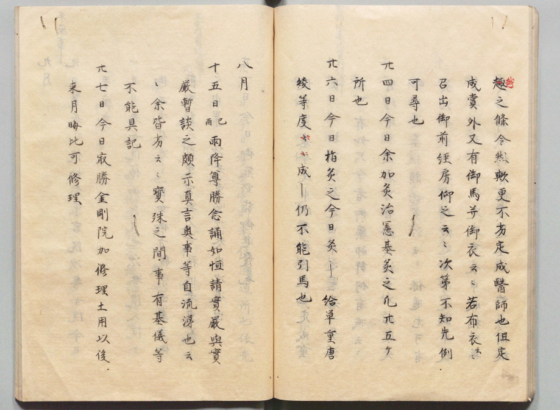 趣之條今然歟更不有定成醫師也但定
成賞外又有御馬并御衣云々若布衣
召出御前経房仰之云々次第不知先例
可尋也
廿四日今日余加灸治憲基灸之凡廿五ケ
所也
廿六日今日指灸之今日灸〻給単重唐
綾等度々成〻仍不能引馬也
八月
十五日己酉雨降尊勝念誦如恒請實嚴與實
嚴暫談之頗示真言奥事等自流澤也云
〻余皆有云々寶珠之間事有墓儀等
不能具記
廿七日今日最勝金剛院加修理土用以後
来月晦比可修理